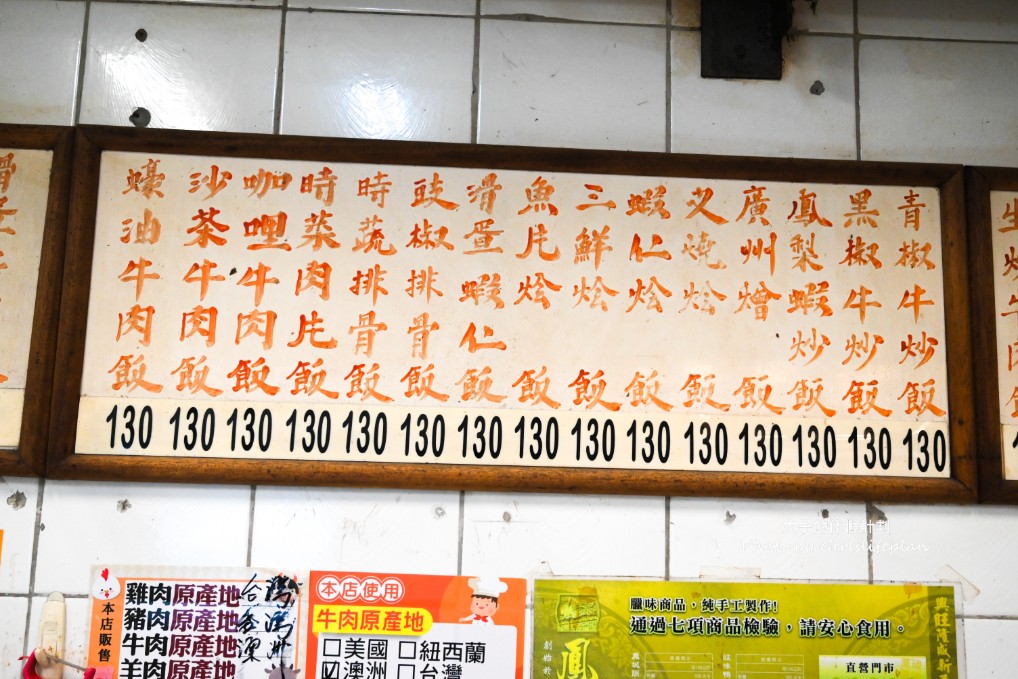 青椒牛炒飯 130
黑椒牛炒飯 130
鳳梨蝦炒飯 130
廣州燴飯 130
叉燒烩飯 130
蝦仁烩飯 130
三鮮烩飯 130
魚片烩飯 130
滑蛋蝦仁飯 130
豉椒排骨飯 130
時蔬排骨飯 130
時菜肉片飯 130
咖哩牛肉飯 130
沙茶牛肉飯 130
蠔油牛肉飯 130
本店販售
雞肉原產地 台灣
豬肉原產地
牛肉原產地 澳洲
羊肉原產地
本店使用
牛肉原產地
□美國 □紐西蘭
☑澳洲 □台灣
臘味商品，純手工製作!
通過七項商品檢驗，請安心食用。
直營門市
創始於
鳳